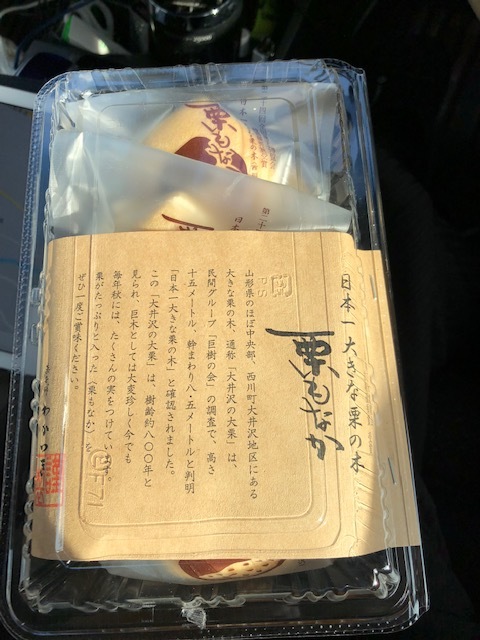 日本一大きな栗の木
栗もなか
山形県のほぼ中央部、西川町大井沢地区にある
大きな栗の木、通称「大井沢の大栗」は、
民間グループ「巨樹の会」の調査で、高さ
十五メートル、幹まわり八・五メートルと判明
「日本一大きな栗の木」と確認されました。
この「大井沢の大栗」は、樹齢約八〇〇年と
見られ、巨木としては大変珍しく今でも
毎年秋には、たくさんの実をつけています。
栗がたっぷりと入った〈栗もなか〉を
ぜひ一度ご賞味ください。
栗もなか
PS